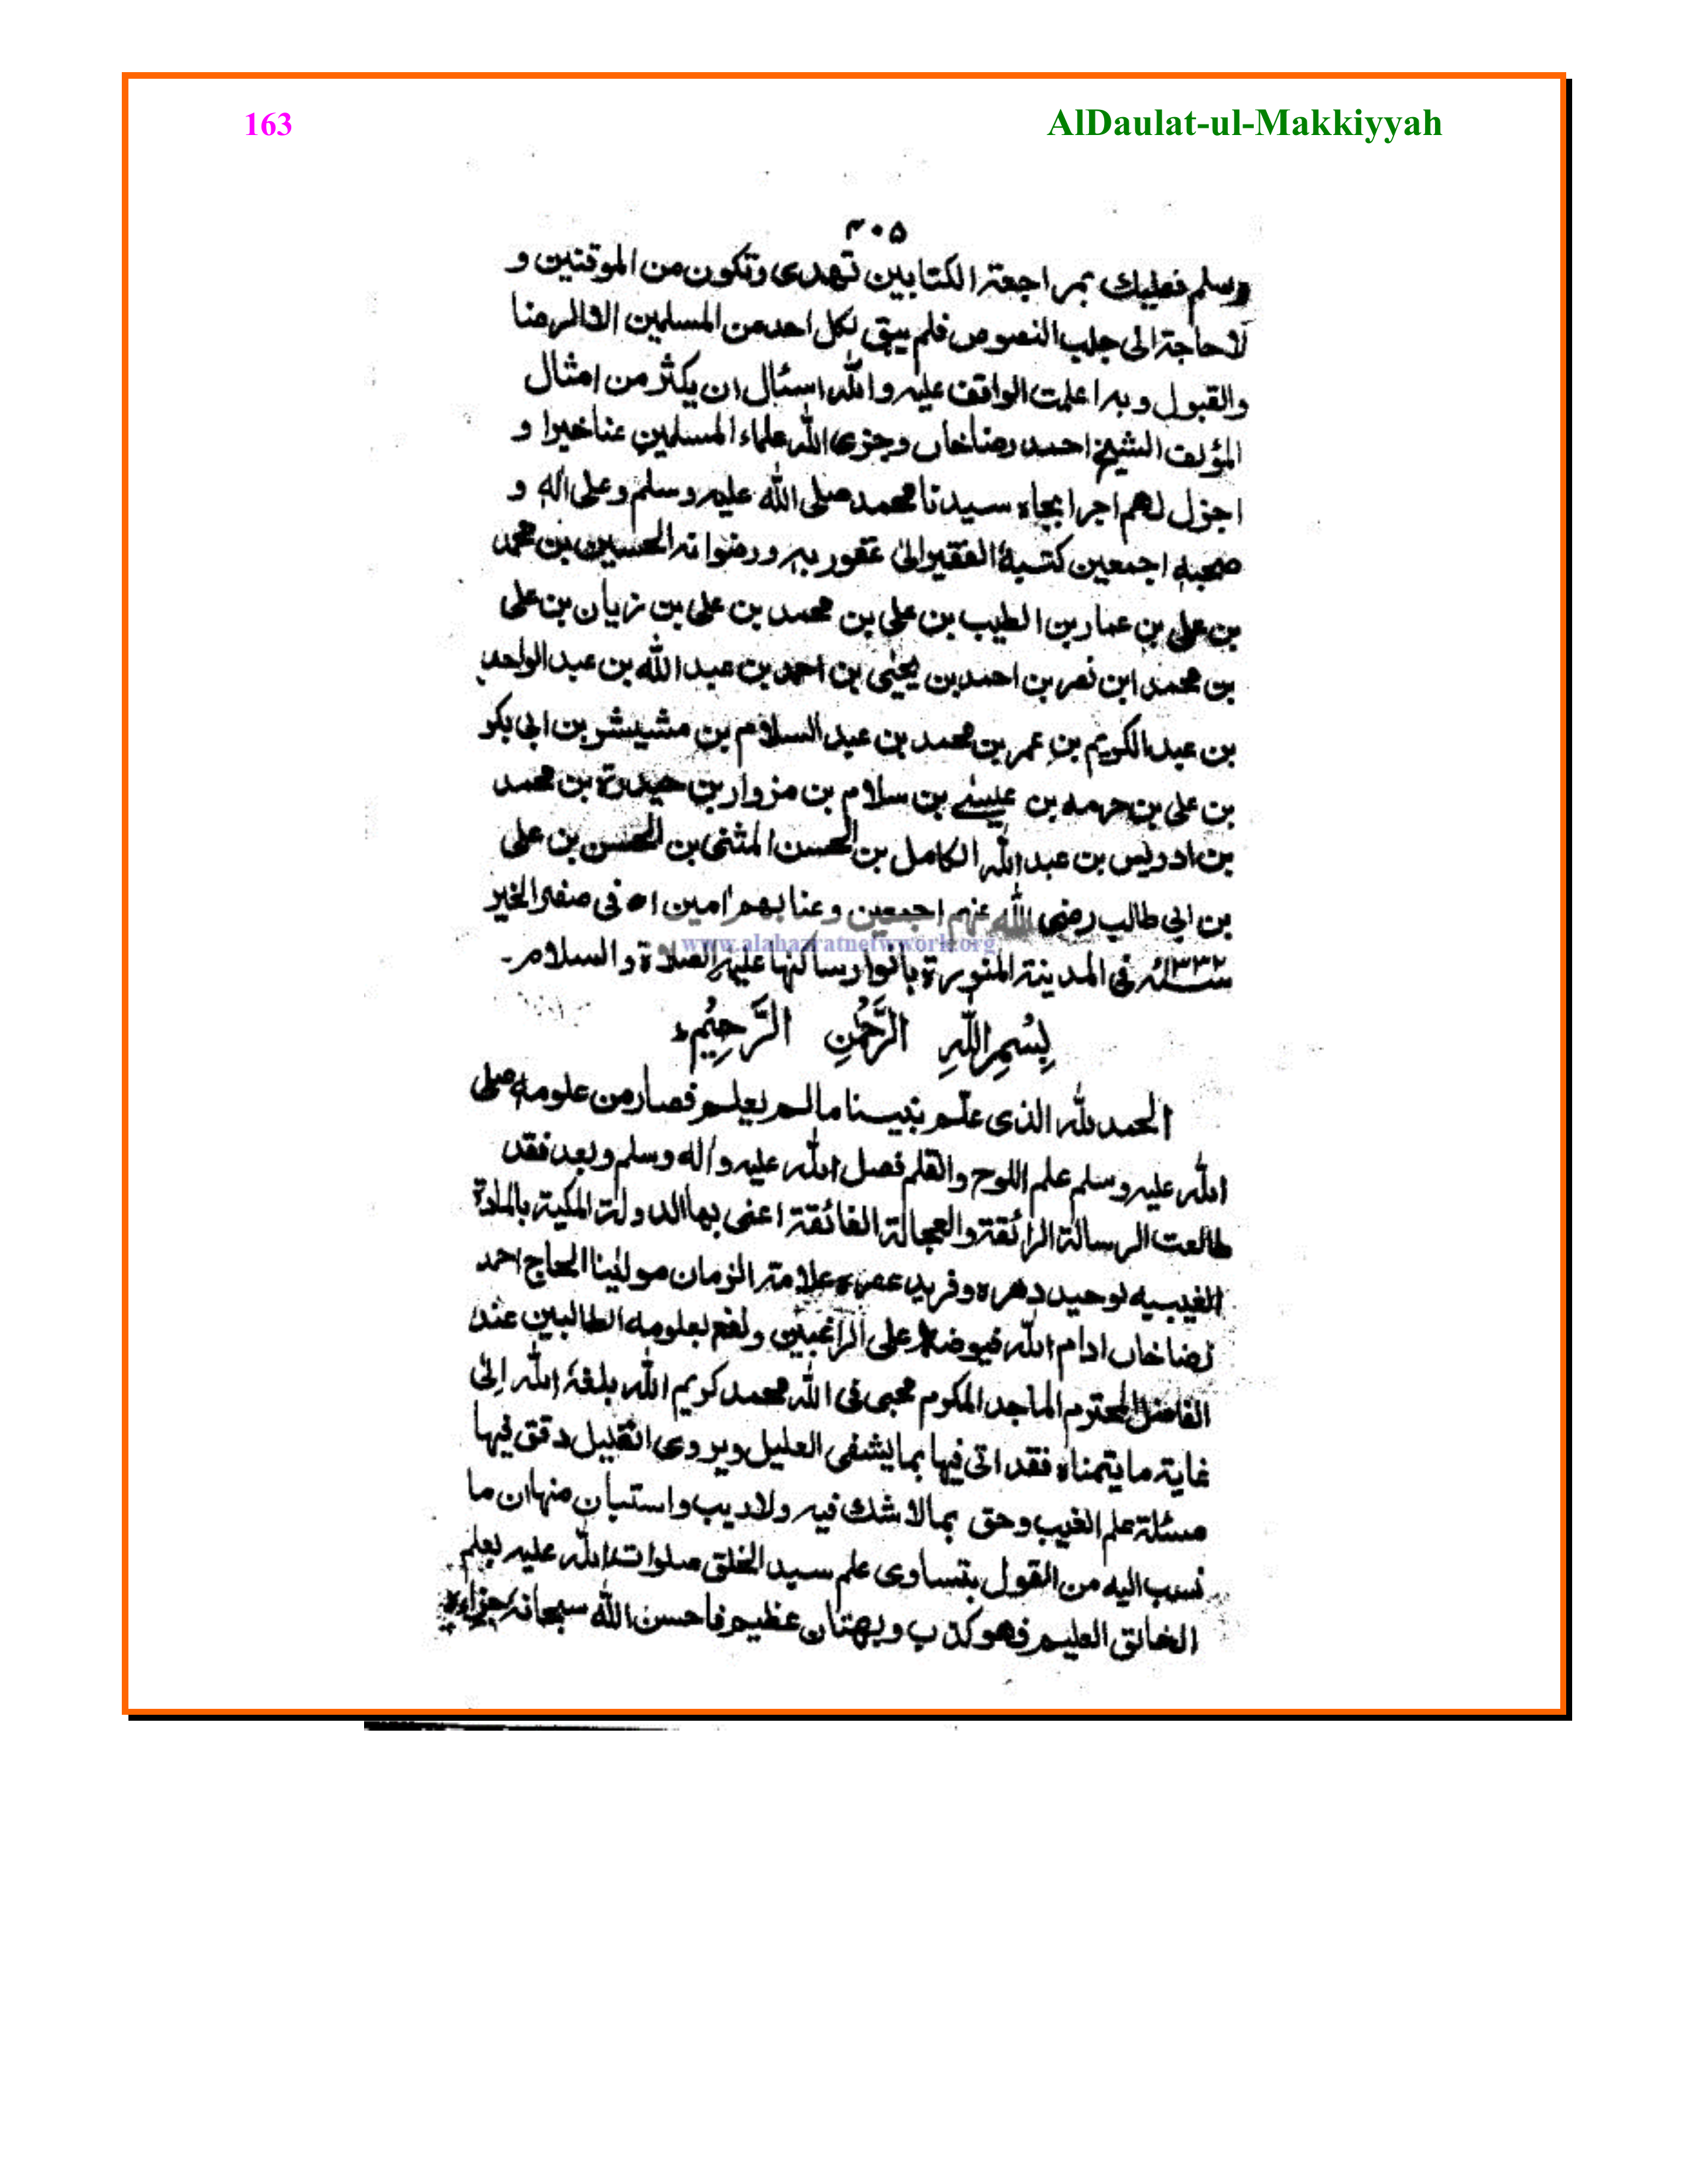 163 AlDaulat-ul-Makkiyyah
۴۰۵
وسلم فعليك بمراجعة الكتابين تهدى وتكون من الموقنين و
لاحاجة الى جلب النصوص فلم يبق لكل احد من المسلمين الا الرضا
والقبول و به اعلمت الواقف عليه والله اسئال ان يكثر من امثال
المؤلف الشيخ احمد رضاخاں وجزى الله علماء المسلمين عناخيرا و
اجزل لهم اجرا بجاه سيدنا محمد صلى الله عليه وسلم وعلى اله و
صحبه اجمعين كتبه الفقير الى عفور به ورضوانه الحسين بن محمد
بن على بن عمار بن الطيب بن على بن محمد بن على بن زيان بن على
بن محمد ابن نصر بن احمد بن يحيٰى بن احمد بن عبد الله بن عبد الواحد
بن عبد الكريم بن عمر بن محمد بن عبد السلام بن مشيشر بن ابى بكر
بن على بن حرمه بن عيسے بن سلام بن مزوار بن حيدرة بن محمد
بن ادريس بن عبد الله الكامل بن الحسن المثنى بن الحسن بن على
بن ابى طالب رضى الله عنهم اجمعين وعنا بهم امين اه فى صفر الخير
سنة ١٣٣٢ فى المدينة المنورة بانوار ساكنها عليه الصلاة والسلام۔
www.alahazratnetwork.org
بِسْمِ اللّٰهِ الرَّحْمٰنِ الرَّحِيْمِ
الحمد لله الذى علّم نبينا مالم يعلم فصار من علومه صلى
الله عليه وسلم علم اللوح والقلم فصل الله عليه واٰله وسلم وبعد فقد
طالعت الرسالة الرائقة والعجالة الفائقة اعنى بها الدولة المكية بالمادة
الغيبيه لوحيد دهره وفريد عصره علامة الزمان مولٰينا الحاج احمد
رضاخاں ادام الله فيوضه على الراغبين ونفع بعلومه الطالبين عند
الفاضل المحترم الماجد المكرم محبى فى الله محمد كريم الله بلغهٗ الله اِلىٰ
غاية مايتمناه فقد اتى فيها بما يشفى العليل ويروى الغليل دقق فيها
مسئلة علم الغيب وحق بمالاشك فيه ولاريب واستبان منها ان ما
نسب اليه من القول بتساوى علم سيد الخلق صلوات الله عليه بعلم
الخالق العليم فهو كذب وبهتان عظيم فاحسن الله سبحانهٗ جزاءه